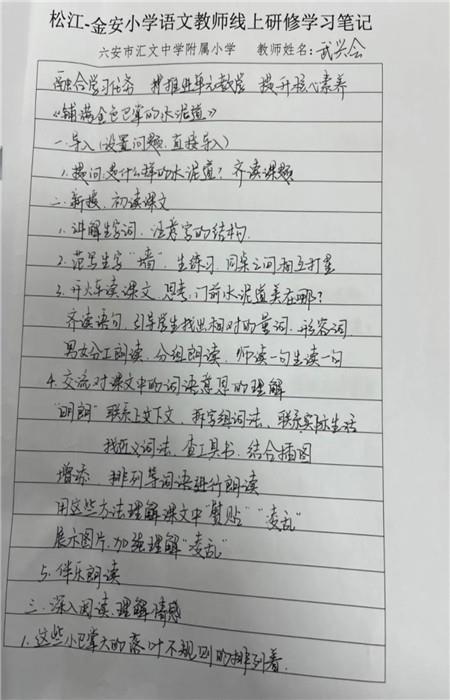 松江-金安小学语文教师线上研修学习笔记
六安市汇文中学附属小学 教师姓名:武兴会
融合学习任务 推进单元教学 提升核心素养
《铺满金色巴掌的水泥道》
一.导入(设置问题,直接导入)
1.提问是什么样的水泥道?齐读课题
二.新授,初读课文
1.讲解生字词,注意字的结构.
2.范写生字"墙",生练习,同桌之间相互打星
3.开火车读课文,思考,门前水泥道美在哪?
齐读语句,引导学生找出相对的量词,形容词.
男女分工朗读,分组朗读,师读一句生读一句
4.交流对课文中的词语意思的理解
"明朗"联系上下文,拆字组词法,联系实际生活
找近义词法,查工具书,结合插图
增添、排列等词语进行朗读
用这些方法理解课文中"剪贴""凌乱"
展示图片,加强理解"凌乱"
5.伴乐朗读
三.深入阅读,理解情感
1.这些小巴掌大的落叶不规则的排列着.